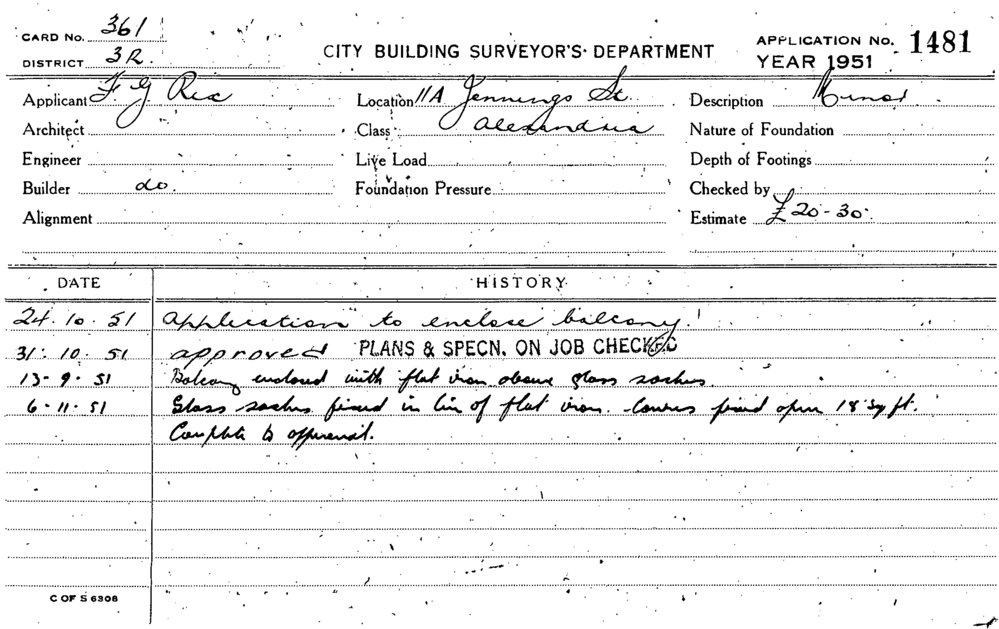 CARD No. 361
DISTRICT 3R.
CITY BUILDING SURVEYOR'S DEPARTMENT
APPLICATION No. 1481
YEAR 1951
Applicant F G Rex Location 11A Jennings St Description Minor
Architect Class Alexandria Nature of Foundation
Engineer Live Load Depth of Footings
Builder do. Foundation Pressure Checked by
Alignment Estimate £20-30
DATE HISTORY
24.10.51 Application to enclose balcony.
31.10.51 approved PLANS & SPECN. ON JOB CHECKED
13-9-51 Balcony enclosed with flat iron above glass sashes.
6-11-51 Glass sashes fixed in lieu of flat iron. Louvres fixed open 18 sq ft.
Complete to approval.
C OF S 6306